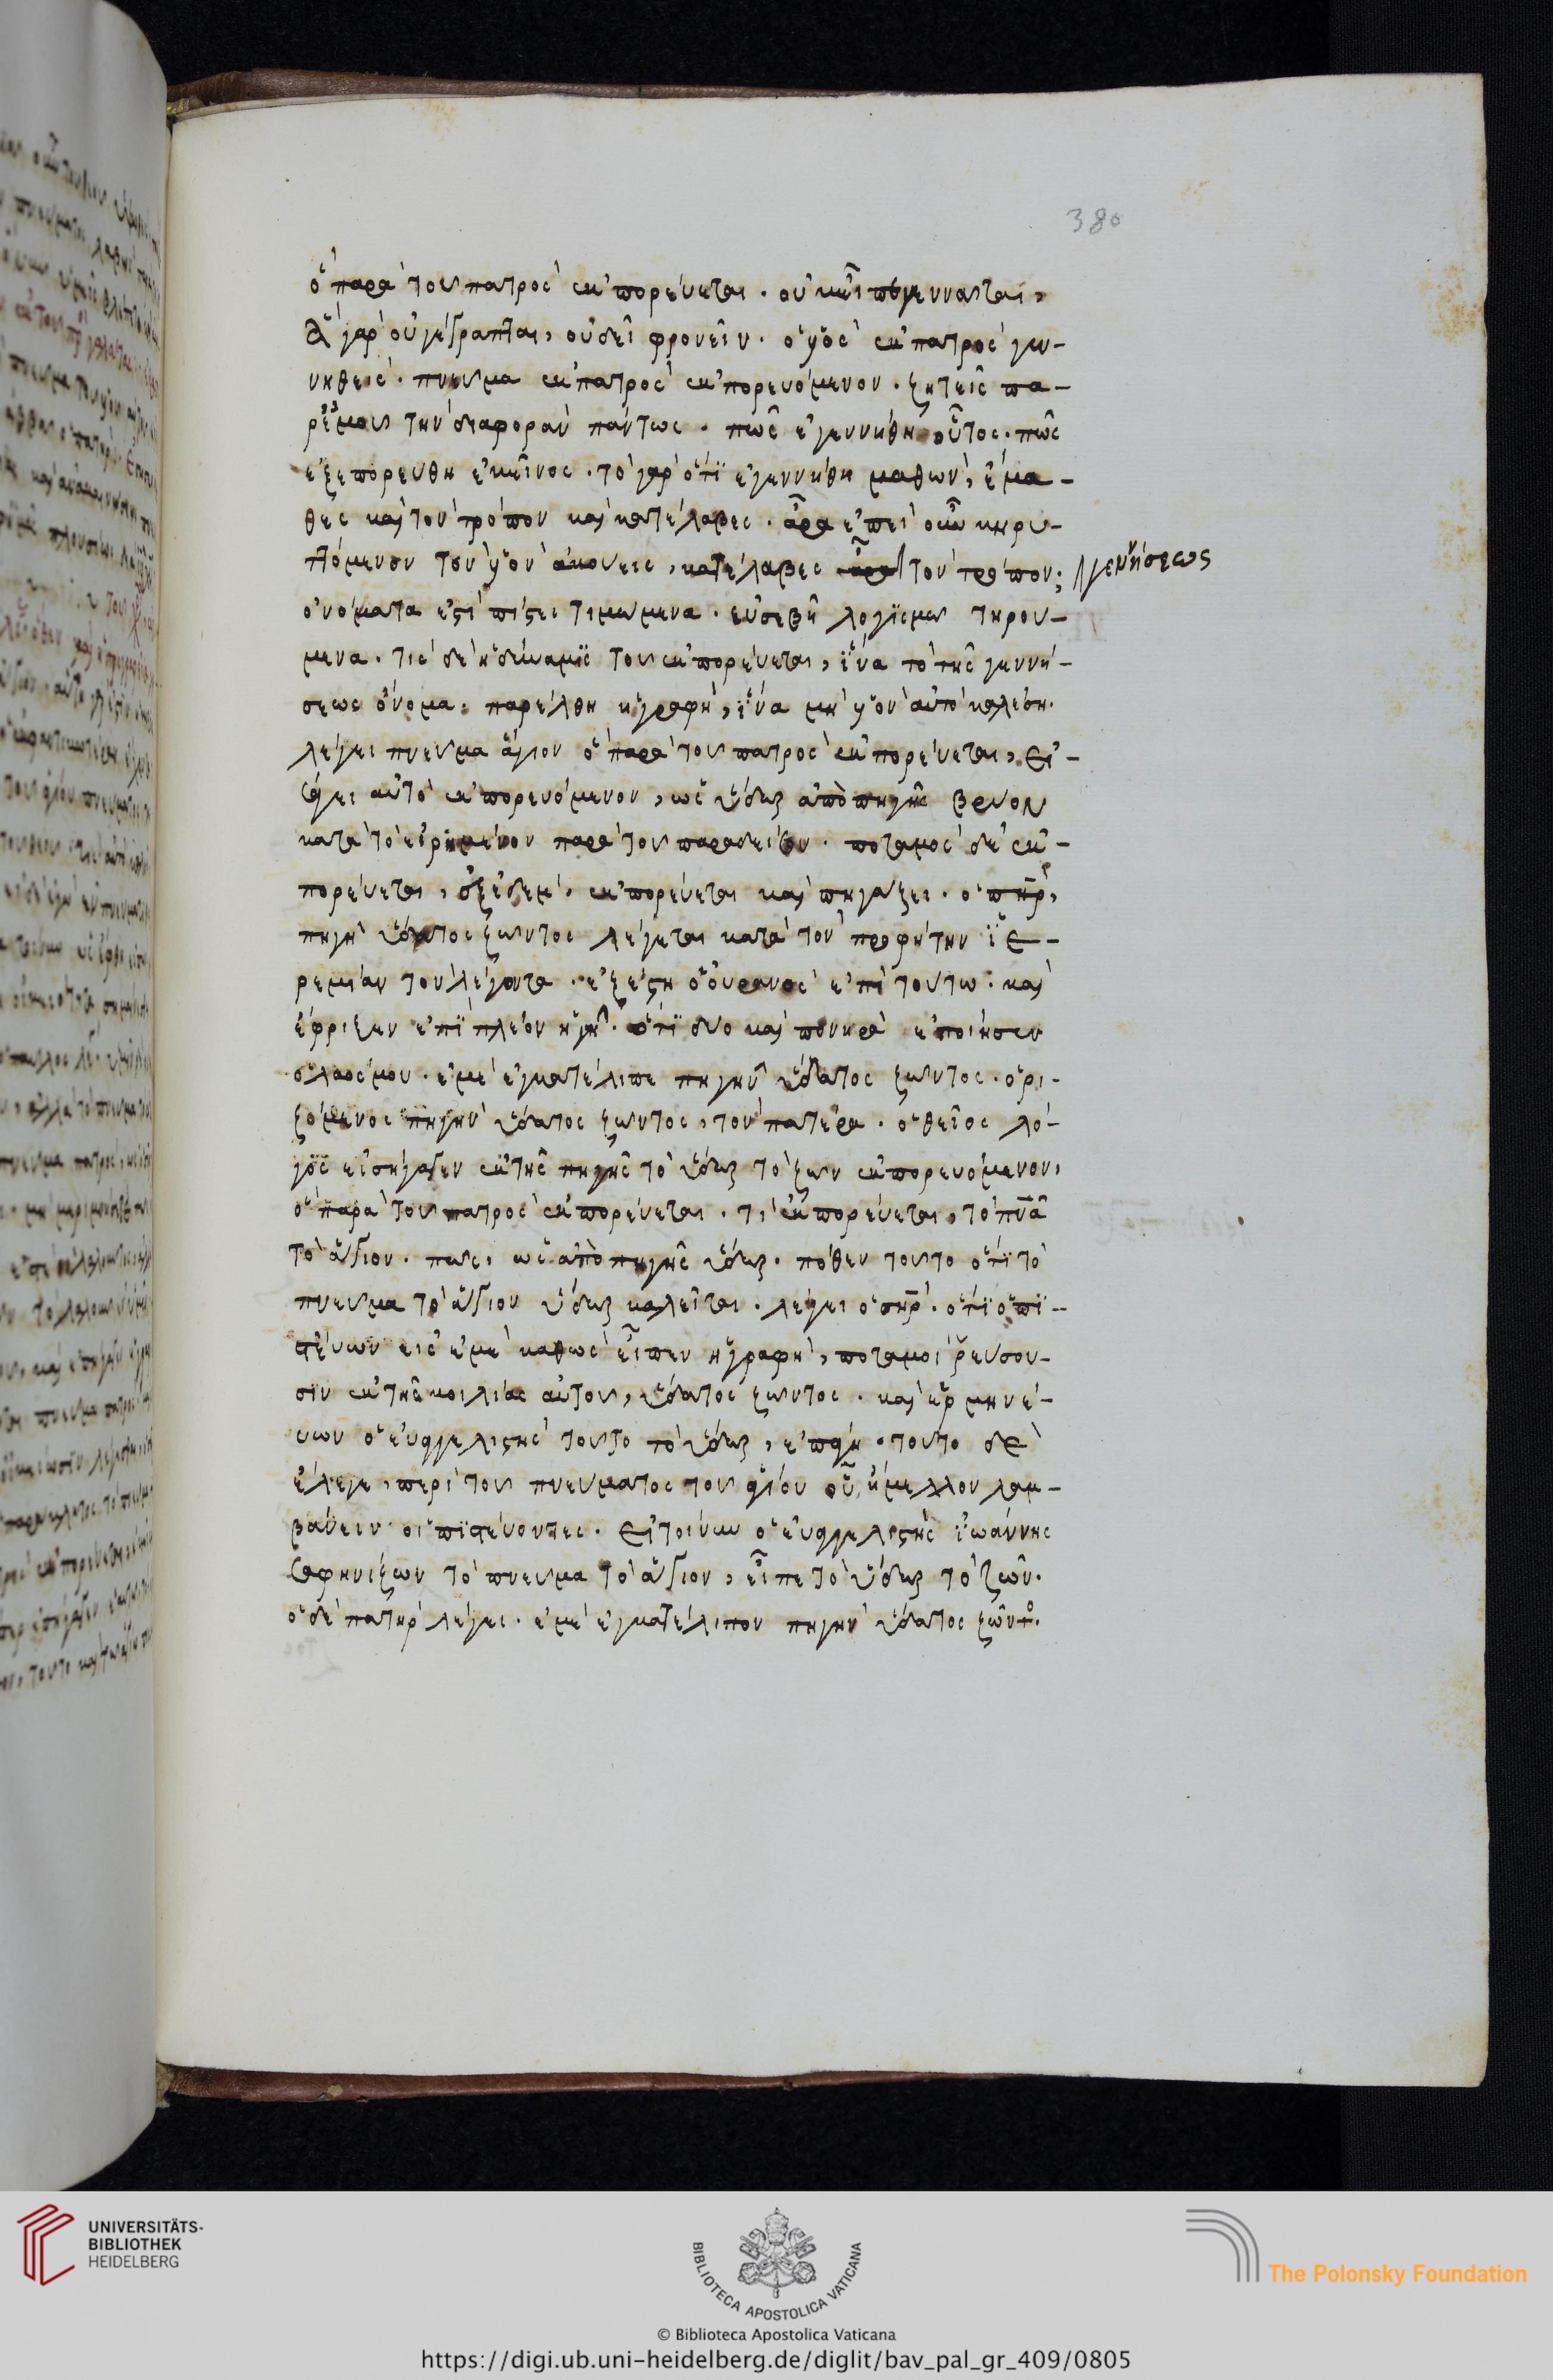 380
ὃ παρὰ τοῦ πατρὸς ἐκπορεύεται. οὐ κεῖται γεννᾶται,
ἃ γὰρ οὐ γέγραπται, οὐ δεῖ φρονεῖν. ὁ υἱὸς ἐκ πατρὸς γεν-
νηθεὶς. πνεῦμα ἐκ πατρὸς ἐκπορευόμενον. ζητεῖς πα-
ρ' ἐμοῦ τὴν διαφορὰν πάντως. πῶς ἐγεννήθη οὗτος. πῶς
ἐξεπορεύθη ἐκεῖνος. τὸ γὰρ ὅτι ἐγεννήθη μαθὼν, ἔμα-
θες καὶ τὸν τρόπον καὶ κατέλαβες. ἆρα ἐπεὶ οὖν κηρυ-
ττόμενον τὸν υἱὸν ἀκούεις, κατέλαβες τὸν τρόπον;
γεννήσεως
ὀνόματα ἐστὶ πίστει τιμώμενα. εὐσεβῆ λογισμῶ τηρού-
μενα. τίς δὲ ἡ δύναμις τοῦ ἐκπορεύεται, ἵνα τὸ τῆς γεννή-
σεως ὄνομα, παρέλθη ἡ γραφὴ, ἵνα μὴ υἱὸν αὐτὸ καλέση.
λέγει πνεῦμα ἅγιον ὃ παρὰ τοῦ πατρὸς ἐκπορεύεται, εἰ-
σάγει αὐτὸ ἐκπορευόμενον, ὡς ὕδωρ ἀπὸ πηγῆς βρύον
κατὰ τὸ εἰρημένον παρὰ τοῦ παραδείσου. ποταμὸς δὲ ἐκ-
πορεύεται, ἐξ ἐδεμ. ἐκπορεύεται καὶ πηγάζει. ὁ πηρ,
πηγὴ ὕδατος ζῶντος λέγεται κατὰ τὸν προφήτην ἱε-
ρεμίαν τὸν λέγοντα. ἐξέστη ὁ οὐρανὸς ἐπὶ τούτω. καὶ
ἔφριξεν ἐπὶ πλέον ἡ γῆ. ὅτι δύο καὶ πονηρὰ ἐποίησεν
ὁ λαός μου. ἐμὲ ἐγκατέλιπε πηγὴν ὕδατος ζῶντος. ὁρι-
ζόμενος πηγὴν ὕδατος ζῶντος, τὸν πατέρα. ὁ θεῖος λό-
γος εἰσήγαγεν ἐκ τῆς πηγῆς τὸ ὕδωρ τὸ ζῶν ἐκπορευόμενον,
ὃ παρὰ τοῦ πατρὸς ἐκπορεύεται. τί ἐκπορεύεται, τὸ πνα
τὸ ἅγιον. πῶς, ὡς ἀπὸ πηγῆς ὕδωρ. πόθεν τοῦτο ὅτι τὸ
πνεῦμα τὸ ἅγιον ὕδωρ καλεῖται. λέγει ὁ σηρ. ὅτι ὁ πι-
στεύων εἰς ἐμὲ καθὼς εἶπεν ἡ γραφὴ, ποταμοὶ ῥεύσου-
σιν ἐκ τῆς κοιλίας αὐτοῦ, ὕδατος ζῶντος. καὶ ἑρμηνεύ-
ων ὁ εὐαγγελιστὴς τοῦτο τὸ ὕδωρ, ἐπάγει. τοῦτο δὲ
ἔλεγε, περὶ τοῦ πνεύματος τοῦ ἁγίου οὗ ἤμελλον λαμ-
βάνειν οἱ πιστεύοντες. εἰ τοίνυν ὁ εὐαγγελιστὴς ἰωάννης
σαφηνίζων τὸ πνεῦμα τὸ ἅγιον, εἶπε τὸ ὕδωρ τὸ ζῶν.
ὁ δὲ πατὴρ λέγει. ἐμὲ ἐγκατέλιπον πηγὴν ὕδατος ζῶντο.
UNIVERSITÄTS-
BIBLIOTHEK
HEIDELBERG
BIBLIOTECA APOSTOLICA VATICANA
The Polonsky Foundation
© Biblioteca Apostolica Vaticana
https://digi.ub.uni-heidelberg.de/diglit/bav_pal_gr_409/0805